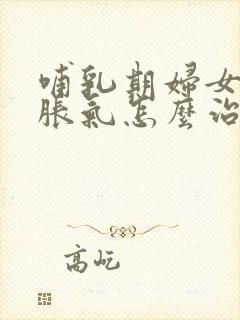 哺乳期婦女
脹氣怎麼治
高屹